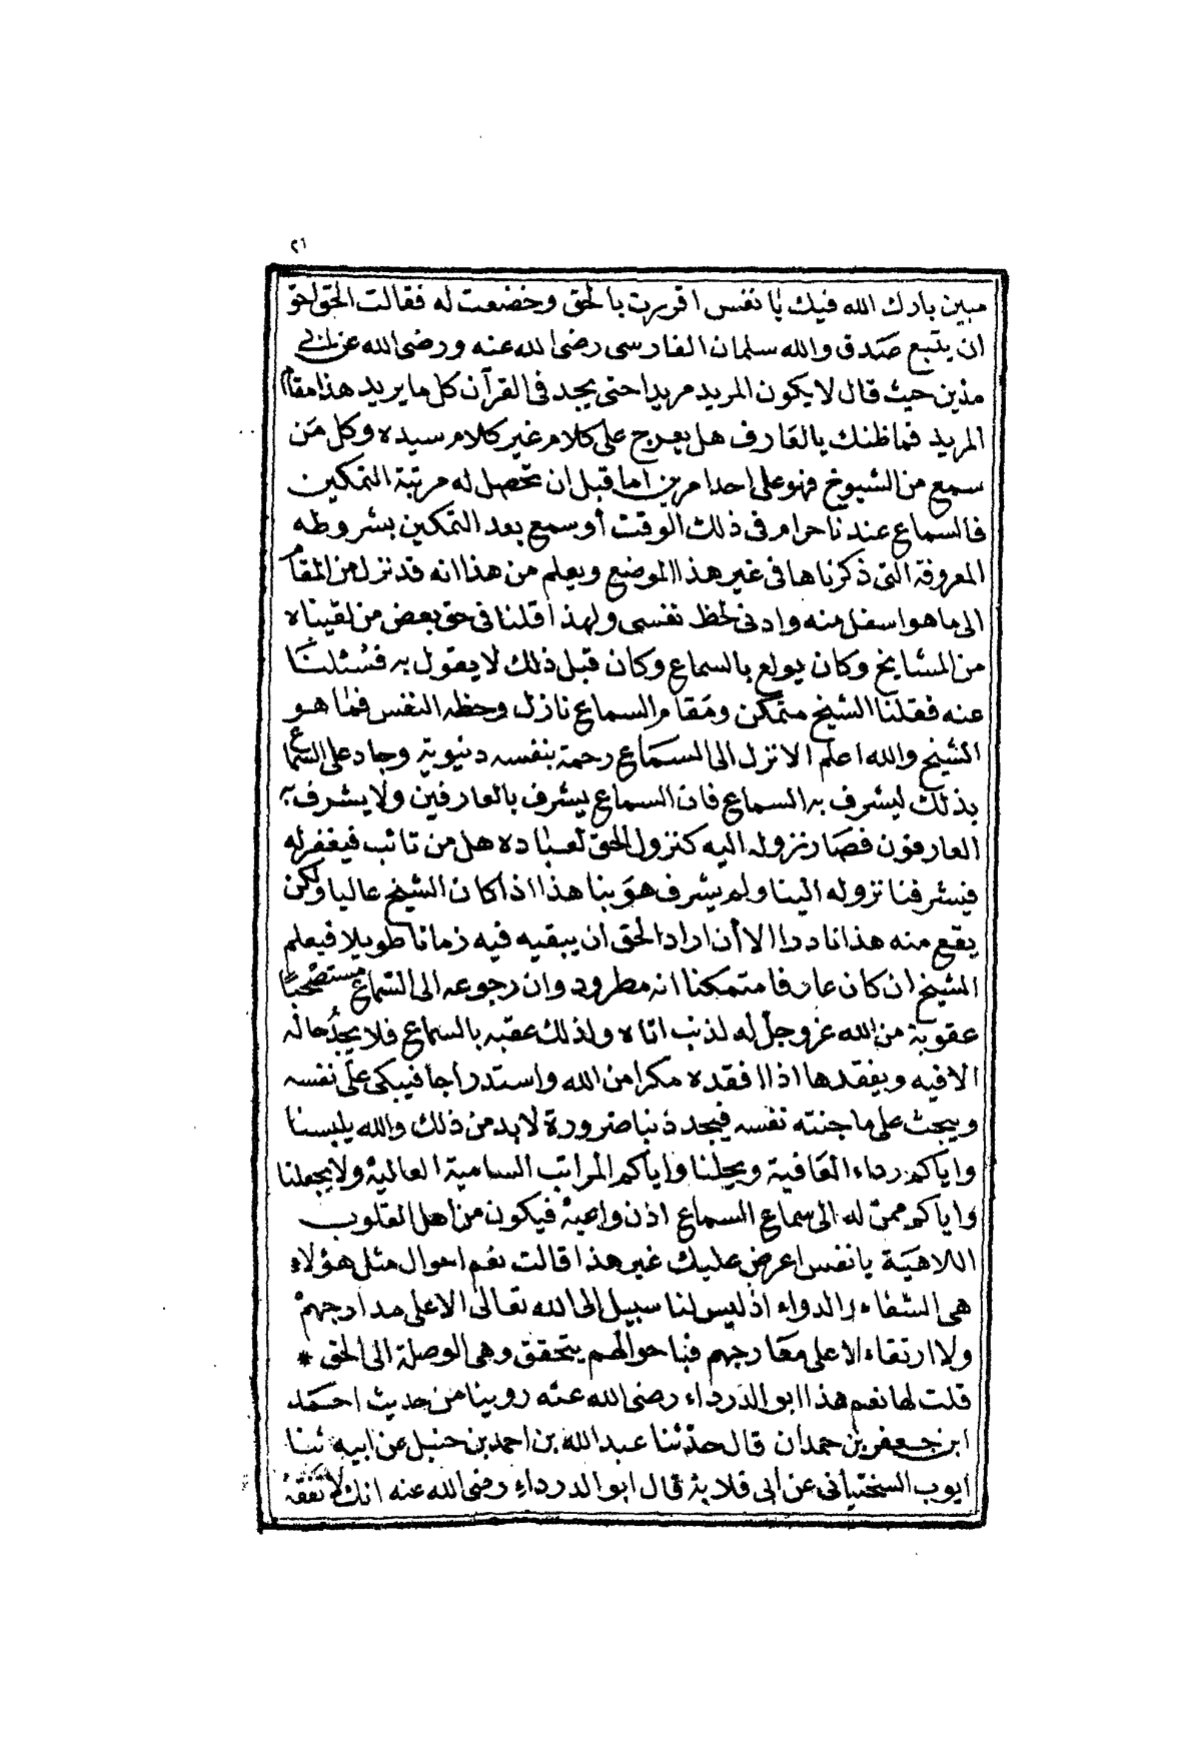 ٢١
مبين بارك الله فيك يا نفس اقررت بالحق وخضعت له فقالت الحق احق
ان يتبع صدق والله سلمان الفارسى رضى الله عنه ورضى الله عن ابى
مدين حيث قال لا يكون المريد مريدا حتى يجد فى القرآن كل ما يريد هذا مقام
المريد فما ظنك بالعارف هل يعرج على كلام غير كلام سيده وكل من
سمع من الشيوخ فهو على احد امرين اما قبل ان تحصل له مرتبة التمكين
فالسماع عندنا حرام فى ذلك الوقت أو سمع بعد التمكين بشروطه
المعروفة التى ذكرناها فى غير هذا الموضع ويعلم من هذا انه قد نزل من المقام
الى ما هو اسفل منه وادنى لحظ نفسى ولهذا قلنا فى حق بعض من لقيناه
من المشايخ وكان يولع بالسماع وكان قبل ذلك لا يقول به فسئلنا
عنه فقلنا الشيخ متمكن ومقام السماع نازل وحظه النفس فما هو
الشيخ والله اعلم الا نزل الى السماع رحمة بنفسه دنيوية وجاد على السماع
بذلك ليشرف به السماع فان السماع يشرف بالعارفين ولا يشرف به
العارفون فصار نزوله اليه كنزول الحق لعباده هل من تائب فيغفر له
فيشرفنا نزوله الينا ولم يشرف هو بنا هذا اذا كان الشيخ عاليا ولكن
يقع منه هذا نادرا الا أن اراد الحق ان يبقيه فيه زمانا طويلا فيعلم
الشيخ ان كان عارفا متمكنا انه مطرود وان رجوعه الى السماع مستصحبا
عقوبة من الله عز وجل له لذنب اتاه ولذلك عقبه بالسماع فلا يجد حاله
الا فيه ويفقدها اذا فقده مكرا من الله واستدراجا فيبكى على نفسه
ويبحث على ما جنته نفسه فيجد ذنبا ضرورة لا بد من ذلك والله يلبسنا
واياكم رداء العافية ويحلنا واياكم المراتب السامية العالية ولا يجعلنا
واياكم ممن له الى سماع السماع اذن واعية فيكون من اهل القلوب
اللاهية يا نفس اعرض عليك غير هذا قالت نعم احوال مثل هؤلاء
هى الشفاء والدواء اذ ليس لنا سبيل الى الله تعالى الا على مدارجهم
ولا ارتقاء الا على معارجهم فباحوالهم يتحقق وهى الوصلة الى الحق *
قلت لها نعم هذا ابو الدرداء رضى الله عنه روينا من حديث احمد
ابن جعفر بن حمدان قال حدثنا عبد الله بن احمد بن حنبل عن ابيه ثنا
ايوب السختيانى عن ابى قلابة قال ابو الدرداء رضى الله عنه انك لا تفقه